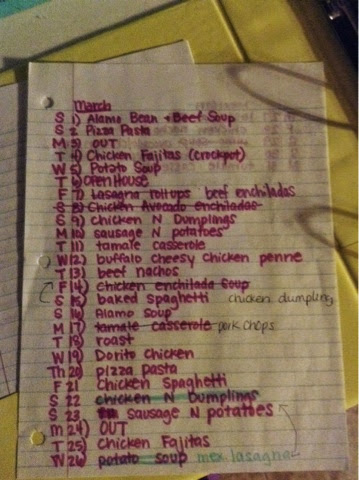 March
S 1) Alamo Bean + Beef Soup
S 2 Pizza Pasta
M 3) OUT
T 4) Chicken Fajitas (crockpot)
W 5) Potato Soup
T 6) Open House
F 7) Lasagna rollups beef enchiladas
S 8) Chicken Avocado enchiladas
S 9) Chicken N Dumplings
M 10) sausage N potatoes
T 11) tamale casserole
W 12) buffalo cheesy chicken penne
T 13) beef nachos
F 14) chicken enchilada soup
S 15) baked spaghetti chicken dumplings
S 16) Alamo Soup
M 17) tamale casserole pork chops
T 18) roast
W 19) Dorito Chicken
Th 20) pizza pasta
F 21 Chicken Spaghetti
S 22 chicken N Dumplings
S 23 sausage N potatoes
m 24) OUT
T 25) Chicken Fajitas
W 26) potato soup mex lasagna